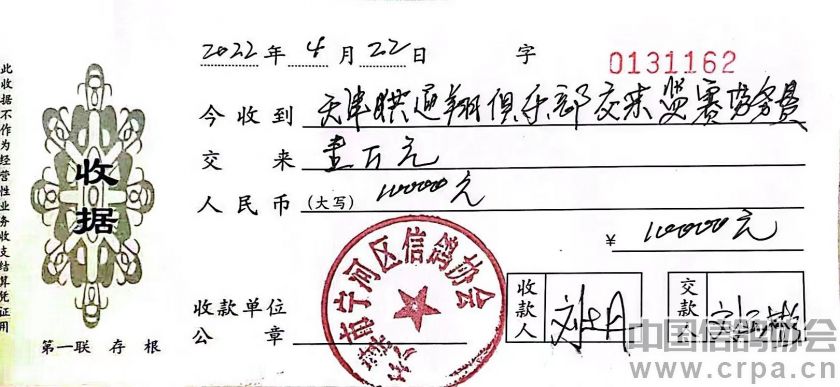 2022年4月22日 字 0131162
今收到 天津 通翔俱乐部交来监赛劳务费
交来 壹万元
人民币(大写) 10000元
¥ 10000元
收款单位
公章
收款人
交款人
收据
第一联 存根
此收据不作为经营性业务收支结算凭证用
天津市宁河区信鸽协会
中国信鸽协会
www.crpa.cn